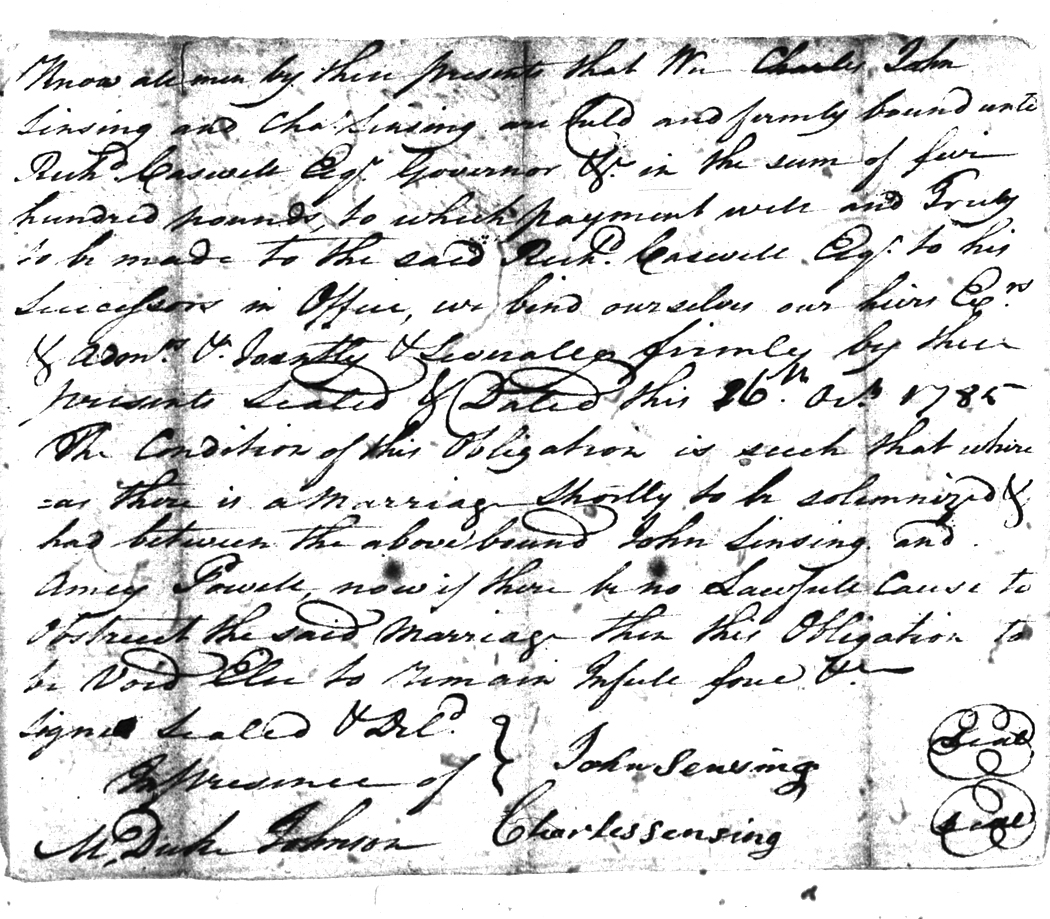 Know all men by these presents that We Charles John
Sinsing and Chas. Sinsing are held and firmly bound unto
Richd. Caswell Esqr. Governor &c. in the sum of five
hundred pounds, to which payment well and Truly
to be made to the said Richd. Caswell Esqr. to his
Successors in Office, we bind ourselves our heirs Exrs
& Admrs. &c. Jointly & Severally firmly by these
presents Sealed & Dated this 26th. Octr. 1785
The Condition of this Obligation is such that where
=as there is a Marriage Shortly to be solemnized &
had between the above bound John Sinsing and
Amey Powell, now if there be no Lawfull Cause to
Obstruct the said Marriage then this Obligation to
be Void Else to Remain In full force &c
Signd Sealed & Deld.
In presence of
John Sensing
Seal
M. Duke Johnson
Charles Sensing
Seal